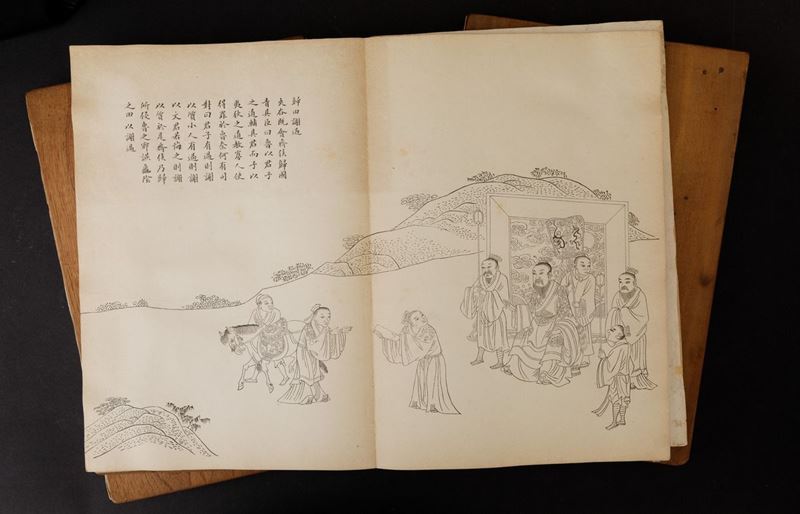 歸田謝過
夾谷既會齊侯歸國
責其臣曰魯以君子
之道輔其君而子以
夷狄之道教寡人使
得罪於魯奈何有司
對曰君子有過則謝
以質小人有過則謝
以文君若悔之則謝
以質於是齊侯乃歸
所侵魯之鄆讙龜陰
之田以謝過